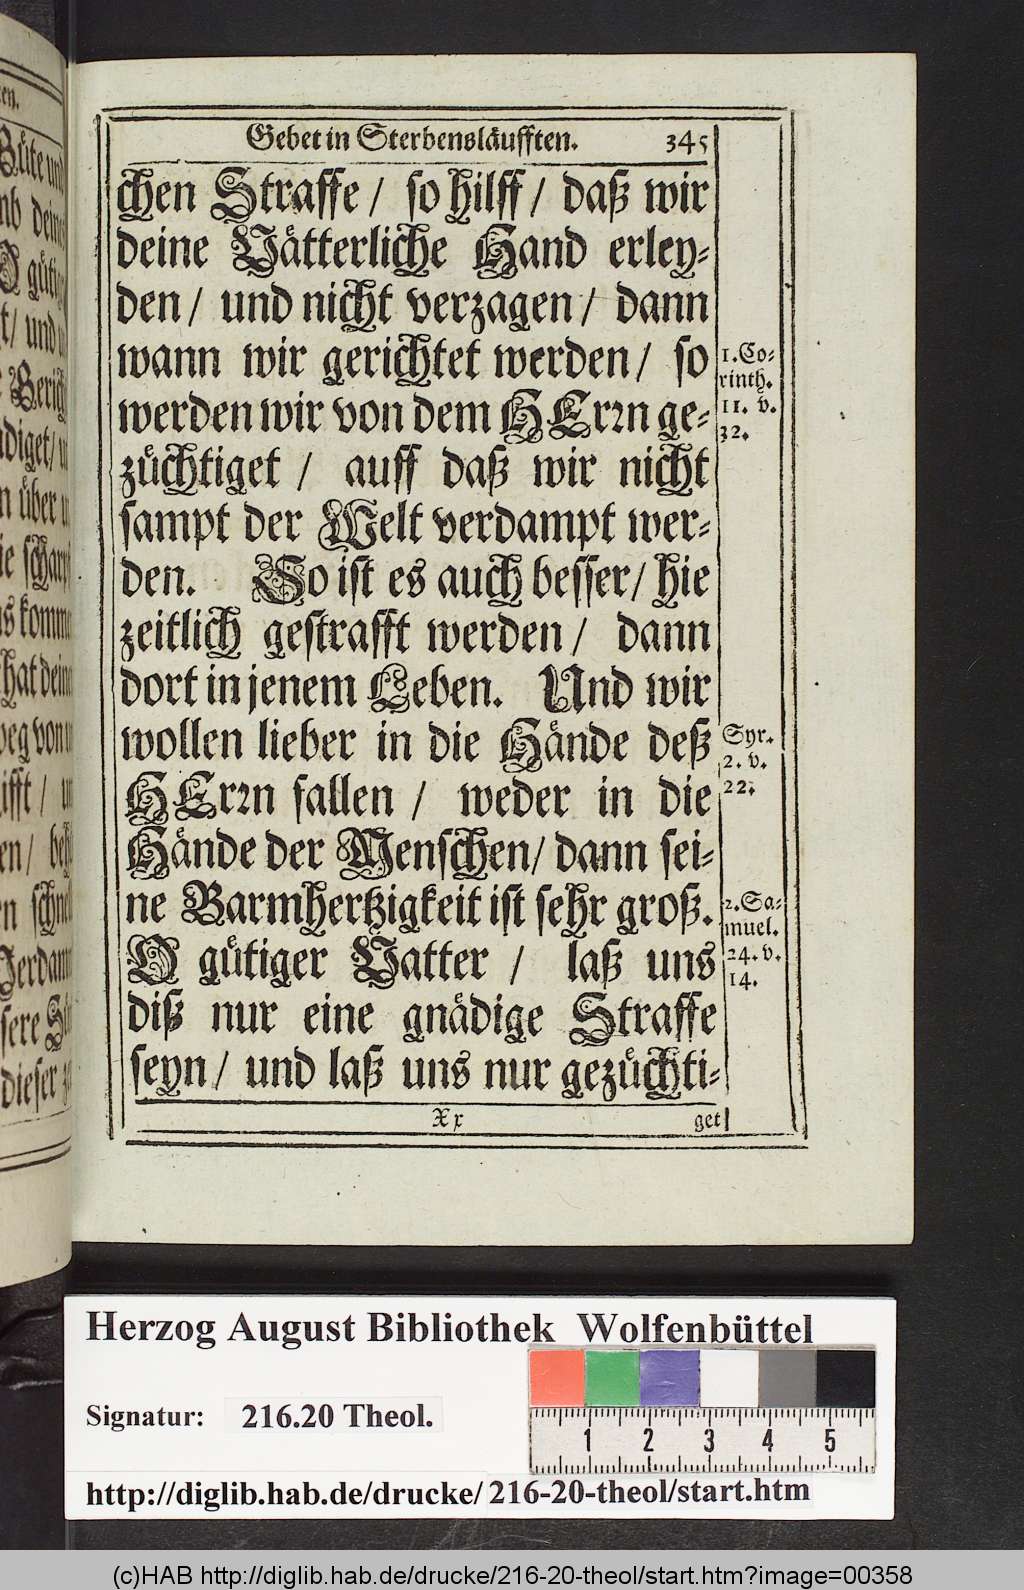 Gebet in Sterbensläufften. 345
chen Straffe / so hilff / daß wir
deine Vätterliche Hand erley-
den / und nicht verzagen / dann
wann wir gerichtet werden / so
werden wir von dem HErrn ge-
züchtiget / auff daß wir nicht
sampt der Welt verdampt wer-
den. So ist es auch besser / hie
zeitlich gestrafft werden / dann
dort in jenem Leben. Und wir
wollen lieber in die Hände deß
HErrn fallen / weder in die
Hände der Menschen / dann sei-
ne Barmhertzigkeit ist sehr groß.
O gütiger Vatter / laß uns
diß nur eine gnädige Straffe
seyn / und laß uns nur gezüchti-
1. Co-
rinth.
11. v.
32.
Syr.
2. v.
22.
2. Sa-
muel.
24. v.
14.
Xx get
Herzog August Bibliothek Wolfenbüttel
Signatur: 216.20 Theol.
1 2 3 4 5
http://diglib.hab.de/drucke/216-20-theol/start.htm
(c)HAB http://diglib.hab.de/drucke/216-20-theol/start.htm?image=00358